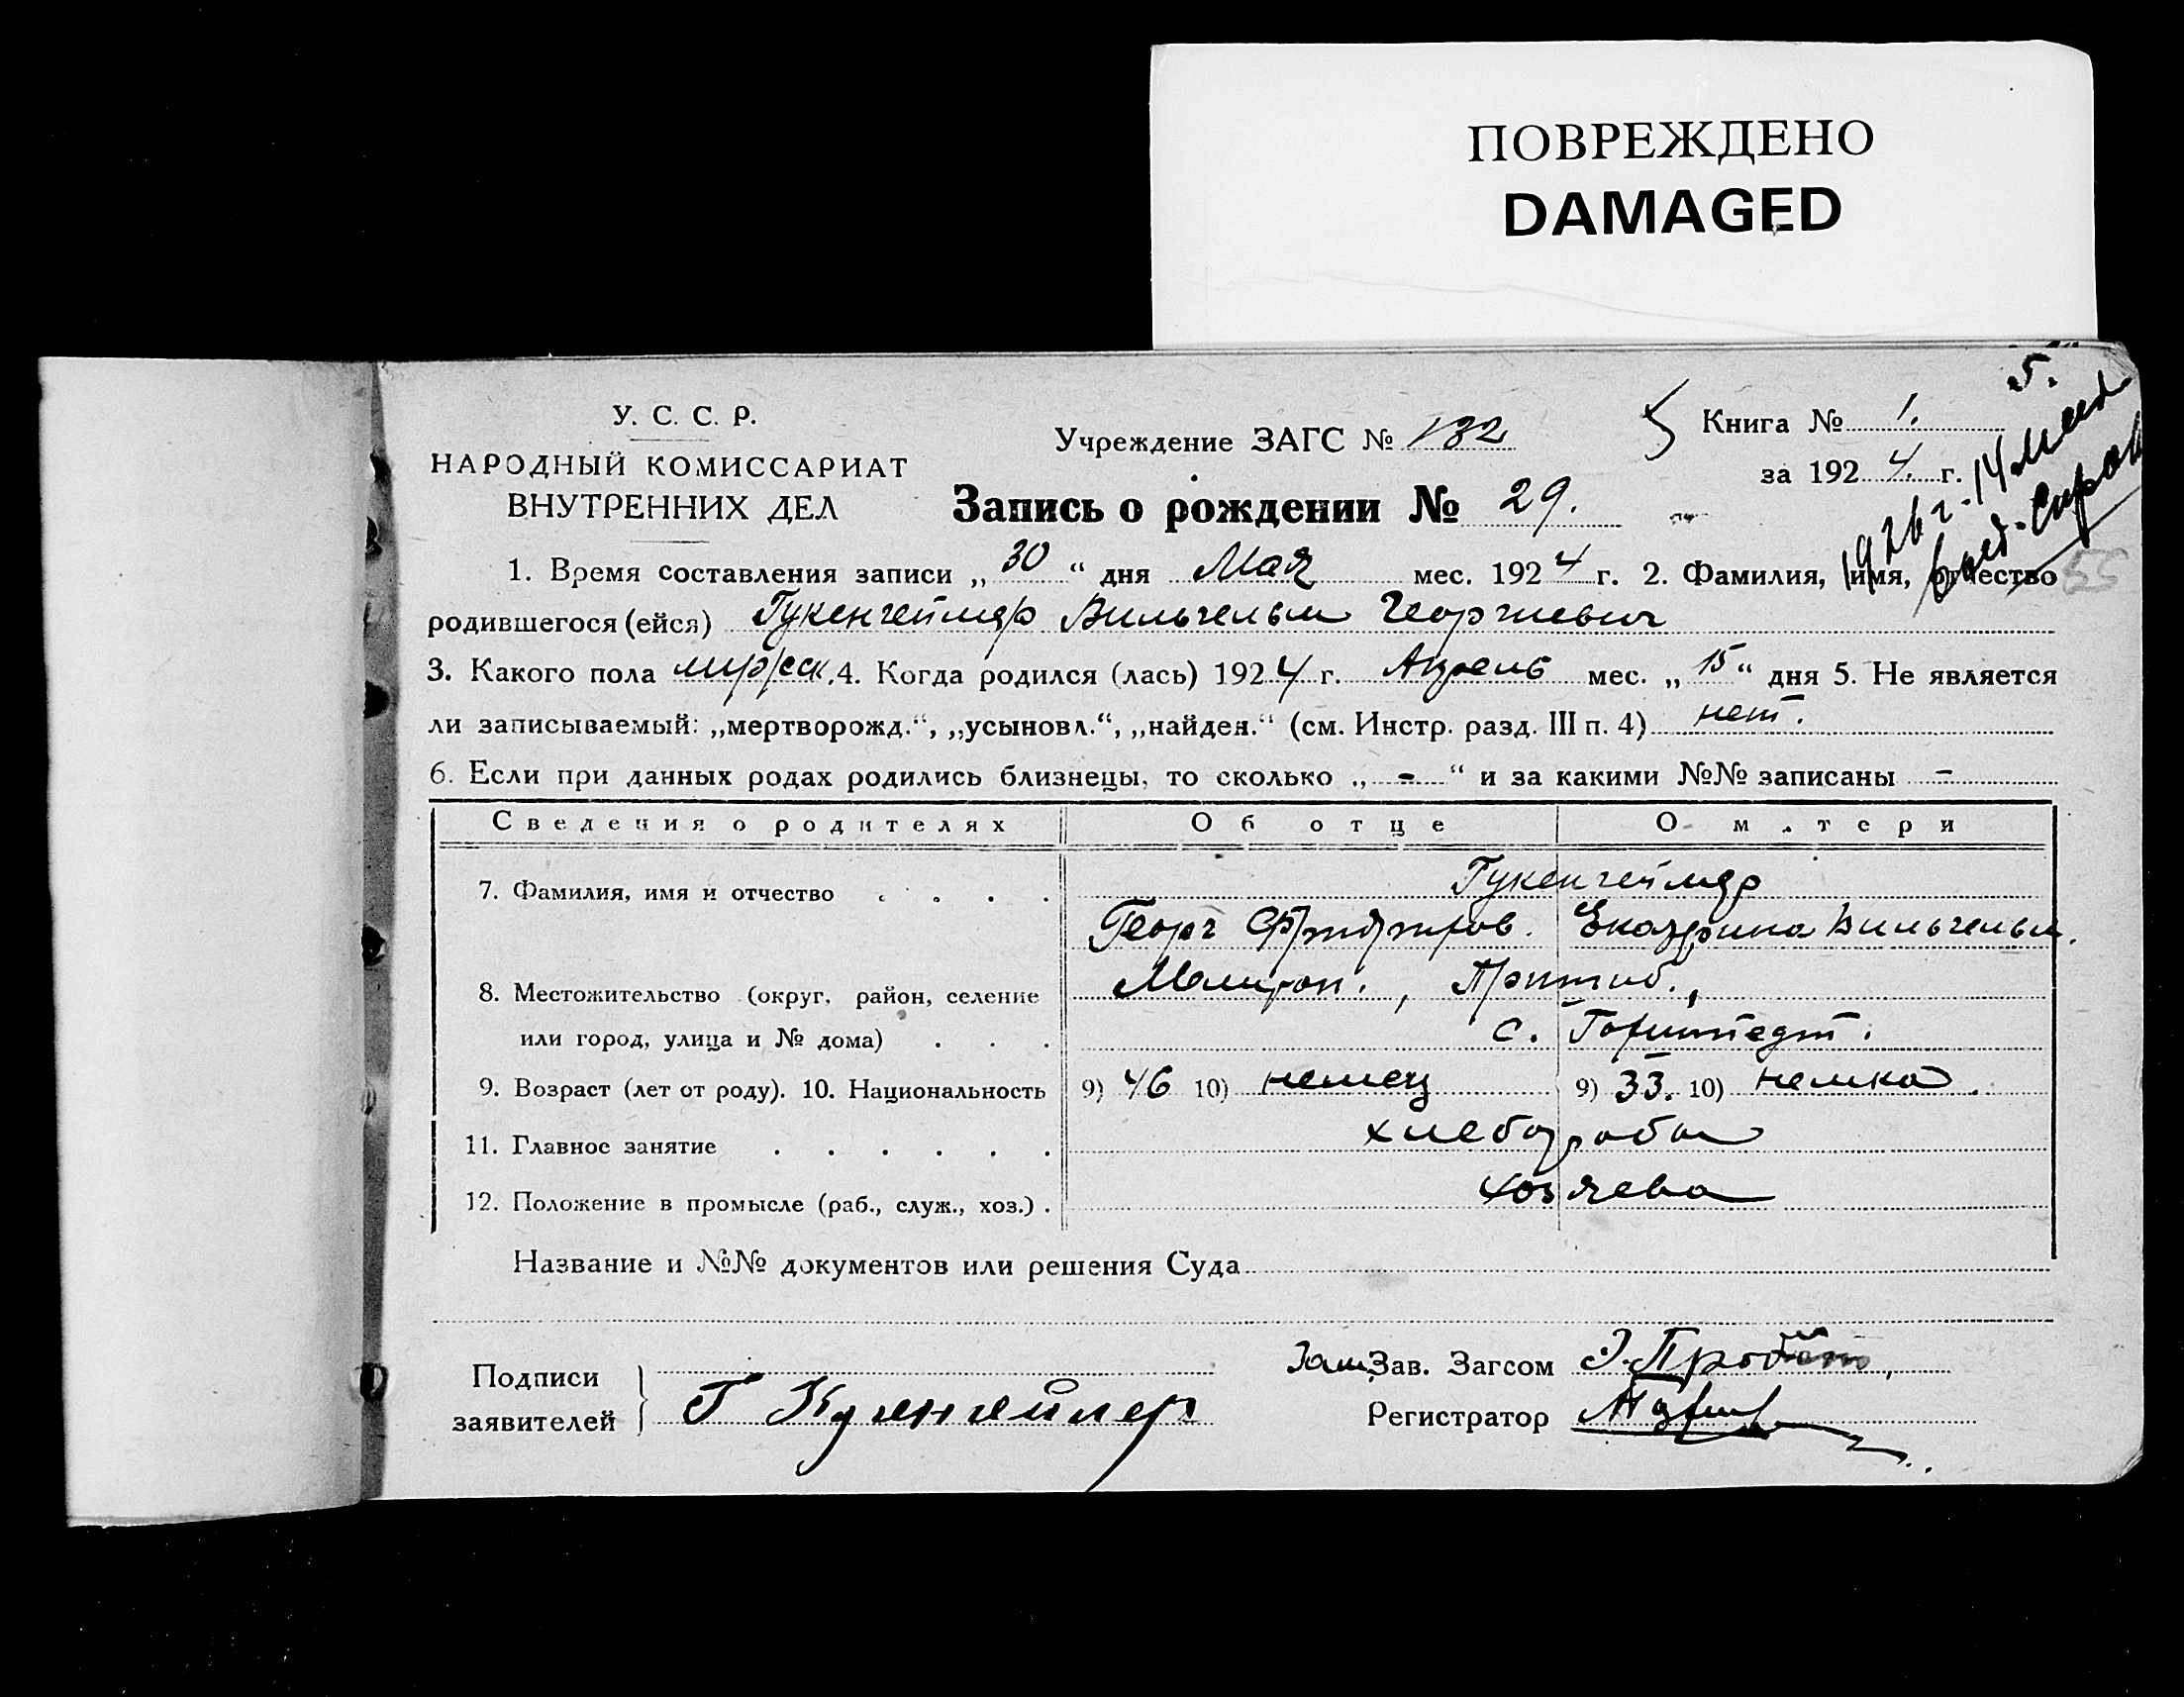 ПОВРЕЖДЕНО
DAMAGED
5.
У. С. С. Р.
НАРОДНЫЙ КОМИССАРИАТ
ВНУТРЕННИХ ДЕЛ
Учреждение ЗАГС № 132
Книга № 1.
за 1924 г.
1926 г. 14
Запись о рождении № 29.
55
1. Время составления записи „30“ дня Мая мес. 1924 г. 2. Фамилия, имя, отчество
родившегося (ейся) Гукенгеймер Вильгельм Георгиевич
3. Какого пола 4. Когда родился (лась) 1924 г. Апрель мес. „15“ дня 5. Не является
ли записываемый: „мертворожд.“, „усыновл.“, „найден.“ (см. Инстр. разд. III п. 4) нет.
6. Если при данных родах родились близнецы, то сколько „-“ и за какими №№ записаны -
Сведения о родителях Об отце О матери
7. Фамилия, имя и отчество . . . . Гукенгеймер
Георг Фридрихов. Екатерина Вильгельм.
8. Местожительство (округ, район, селение Мелитоп., Пришиб.,
или город, улица и № дома) . . . с. Гохштедт.
9. Возраст (лет от роду). 10. Национальность 9) 46 10) немец 9) 33. 10) немка.
11. Главное занятие . . . . . . хлеборобы
12. Положение в промысле (раб., служ., хоз.) . хозяева
Название и №№ документов или решения Суда
Подписи
заявителей
Г Кукенгеймер
Зам. Зав. Загсом
Регистратор